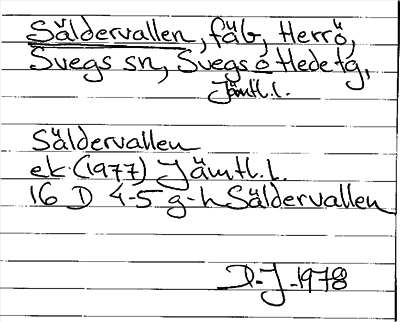 Säldervallen, fäb, Herrö,
Svegs sn, Svegs o Hede tg,
Jämtl.l.
Säldervallen
ek (1977) Jämtl.l.
16 D 4-5 g-h Säldervallen
D-J -1978